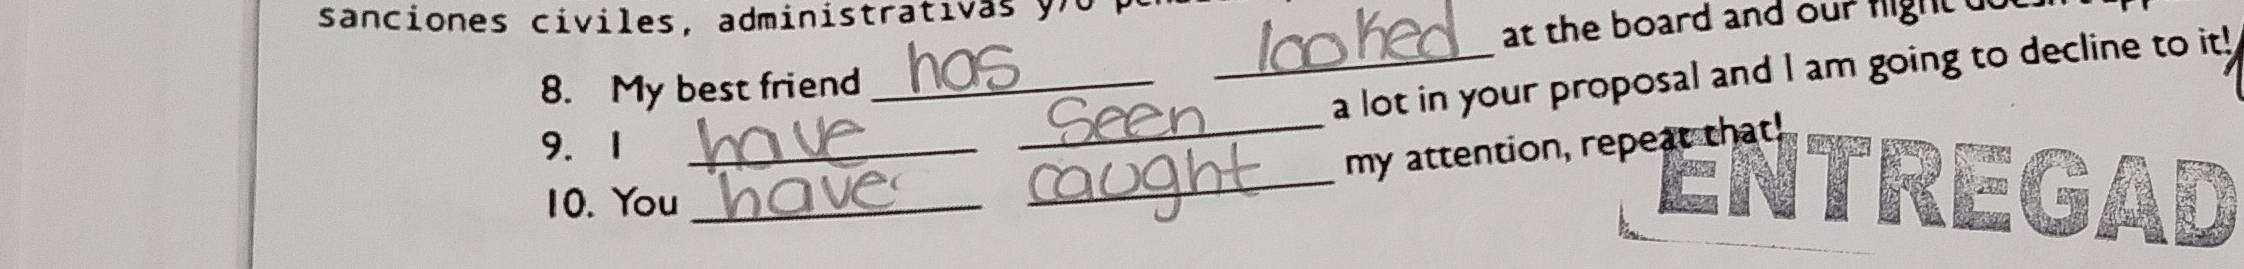 sanciones civiles, administrativas y/o
8. My best friend has looked at the board and our flight
9. I have seen a lot in your proposal and I am going to decline to it!
10. You have caught my attention, repeat that!
ENTREGAD